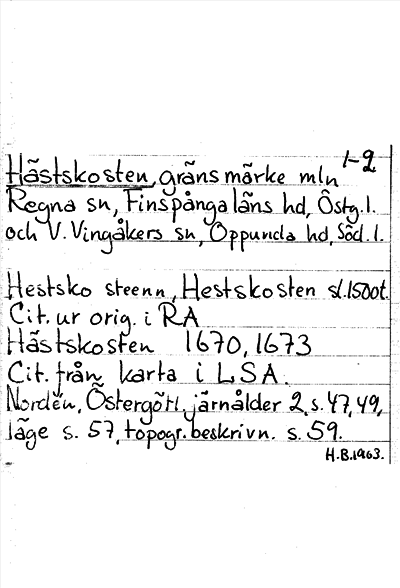 1-2
Hästskosten, gränsmärke mln
Regna sn, Finspångaläns hd, Östg.l.
och V. Vingåkers sn, Oppunda hd, Söd.l.
Hestsko steenn, Hestskosten sl.1500t.
Cit. ur orig. i RA
Hästskosten 1670, 1673
Cit. från karta i LSA.
Nordén, Östergötl. järnålder 2, s. 47, 49,
läge s. 57, topogr. beskrivn. s. 59.
H.B. 1963.